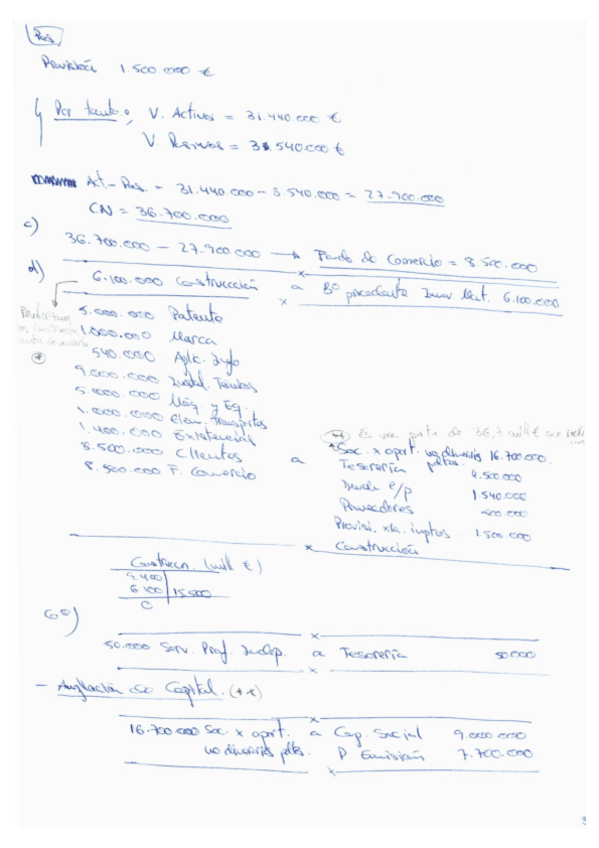 Pas
Provisión 1.500.000 €
Por tanto, V. Activos = 31.440.000 €
V. Pasivos = 3.540.000 €
Act - Pas. = 31.440.000 - 3.540.000 = 27.900.000
CN = 36.700.000
c)
36.700.000 - 27.900.000 → Fondo de Comercio = 8.500.000
d)
6.100.000 Construcción a Bº procedente Inmov Mat. 6.100.000
x
5.000.000 Patente
1.000.000 Marca
540.000 Aplic. Info
9.000.000 Instal. Técnicas
5.000.000 Máq. y Eq.
1.000.000 Elem. Transportes
1.400.000 Existencias
8.500.000 Clientes
8.500.000 F. Comercio
(**) Es una parte de 36,7 mill €
a Soc. x aport. no dinerarias ptes. 16.700.000
Tesorería 4.500.000
Deuda c/p 1.540.000
Proveedores 500.000
Provisi. xra. imptos 1.500.000
Construcción
x
Construcn. (mill €)
9.400
6.100 | 15.500
0
65)
x
50.000 Serv. Prof. Indep. a Tesorería 50.000
x
- Ampliación de Capital. (**)
x
16.700.000 Soc. x aport. a Cap. Social 9.000.000
no dinerarias ptes. P Emisión 7.700.000
x